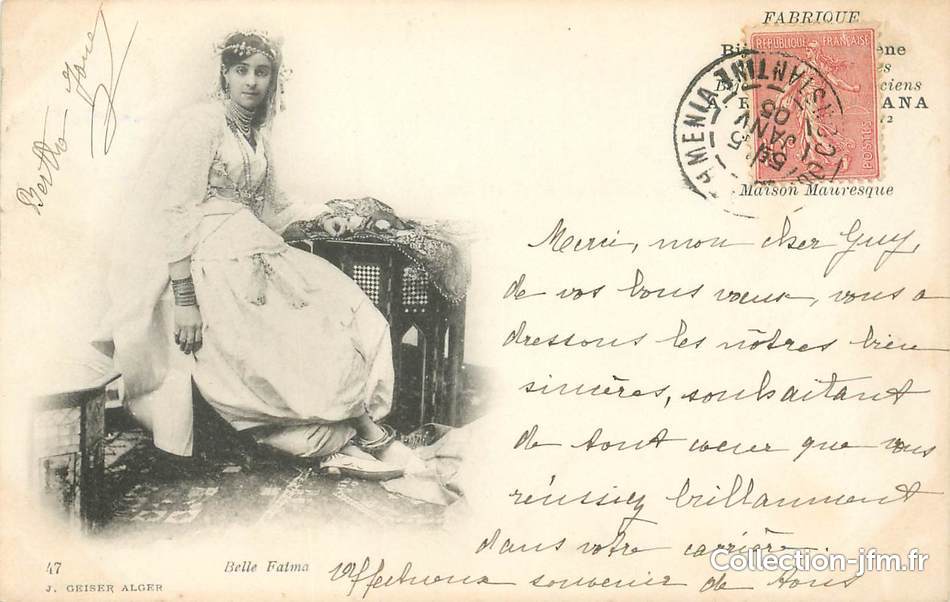 FABRIQUE
Bi
ène
es
Bij
ciens
A. R
ANA
1/2
Maison Mauresque
RÉPUBLIQUE FRANÇAISE
POSTES
CONSTANTINE
5 JANV 05
Merci, mon cher Guy,
de vos bons vœux, vous a
dressons les nôtres bien
sincères, souhaitant
de tout cœur que vous
réussiez brillamment
dans votre carrière.
Affectueux souvenir de tous
47
Belle Fatma
J. GEISER ALGER
Collection-jfm.fr